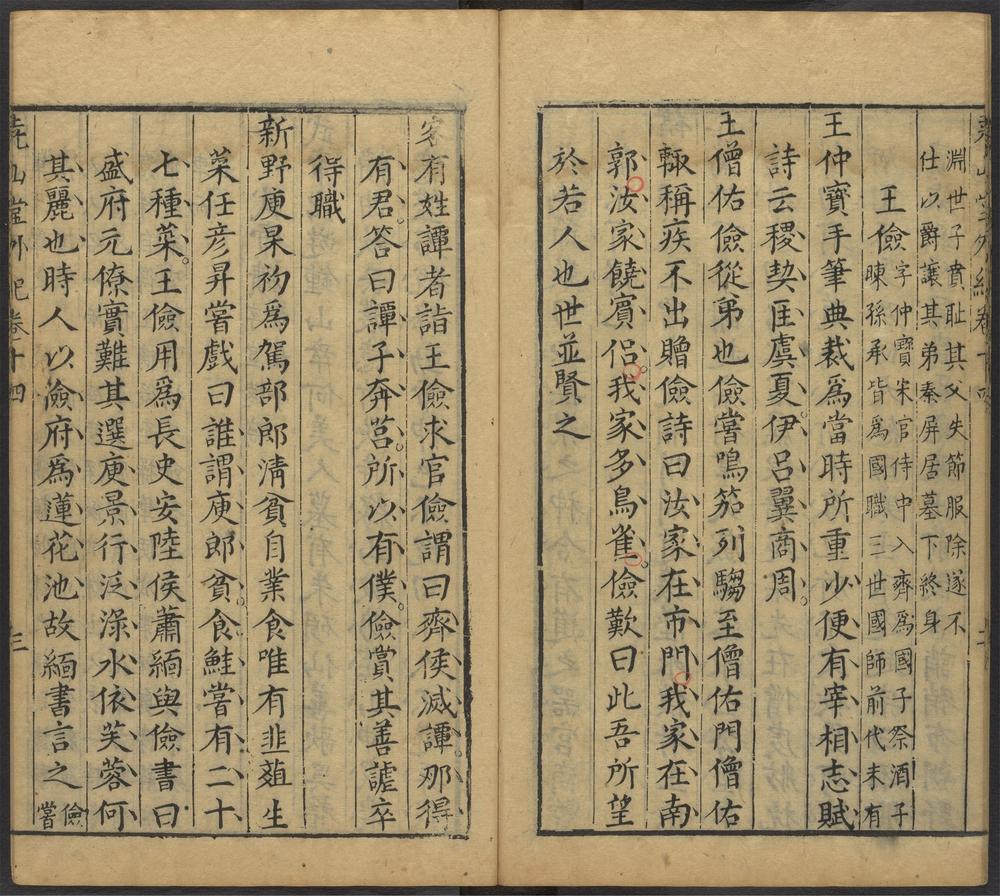 堯山堂外紀卷十四 二
淵世子賁耻其父失節服除遂不
仕以爵讓其弟秦屏居墓下終身
王儉字仲寶宋官侍中入齊爲國子祭酒子
暕孫承皆爲國職三世國師前代未有
王仲寶手筆典裁爲當時所重少便有宰相志賦
詩云稷契匡虞夏伊呂翼商周
王僧佑儉從弟也儉嘗鳴笳列騶至僧佑門僧佑
輙稱疾不出贈儉詩曰汝家在市門我家在南
郭汝家饒賓侶我家多鳥雀儉歎曰此吾所望
於若人也世並賢之
客有姓譚者詣王儉求官儉謂曰齊侯滅譚那得
有君答曰譚子奔莒所以有僕儉賞其善謔卒
得職
新野庾杲初爲駕部郎淸貧自業食唯有韭葅生
菜任彦昇嘗戲曰誰謂庾郎貧食鮭嘗有二十
七種菜王儉用爲長史安陸侯蕭緬與儉書曰
盛府元僚實難其選庾景行泛淥水依芙蓉何
其麗也時人以儉府爲蓮花池故緬書言之儉
嘗
堯山堂外紀卷十四 三